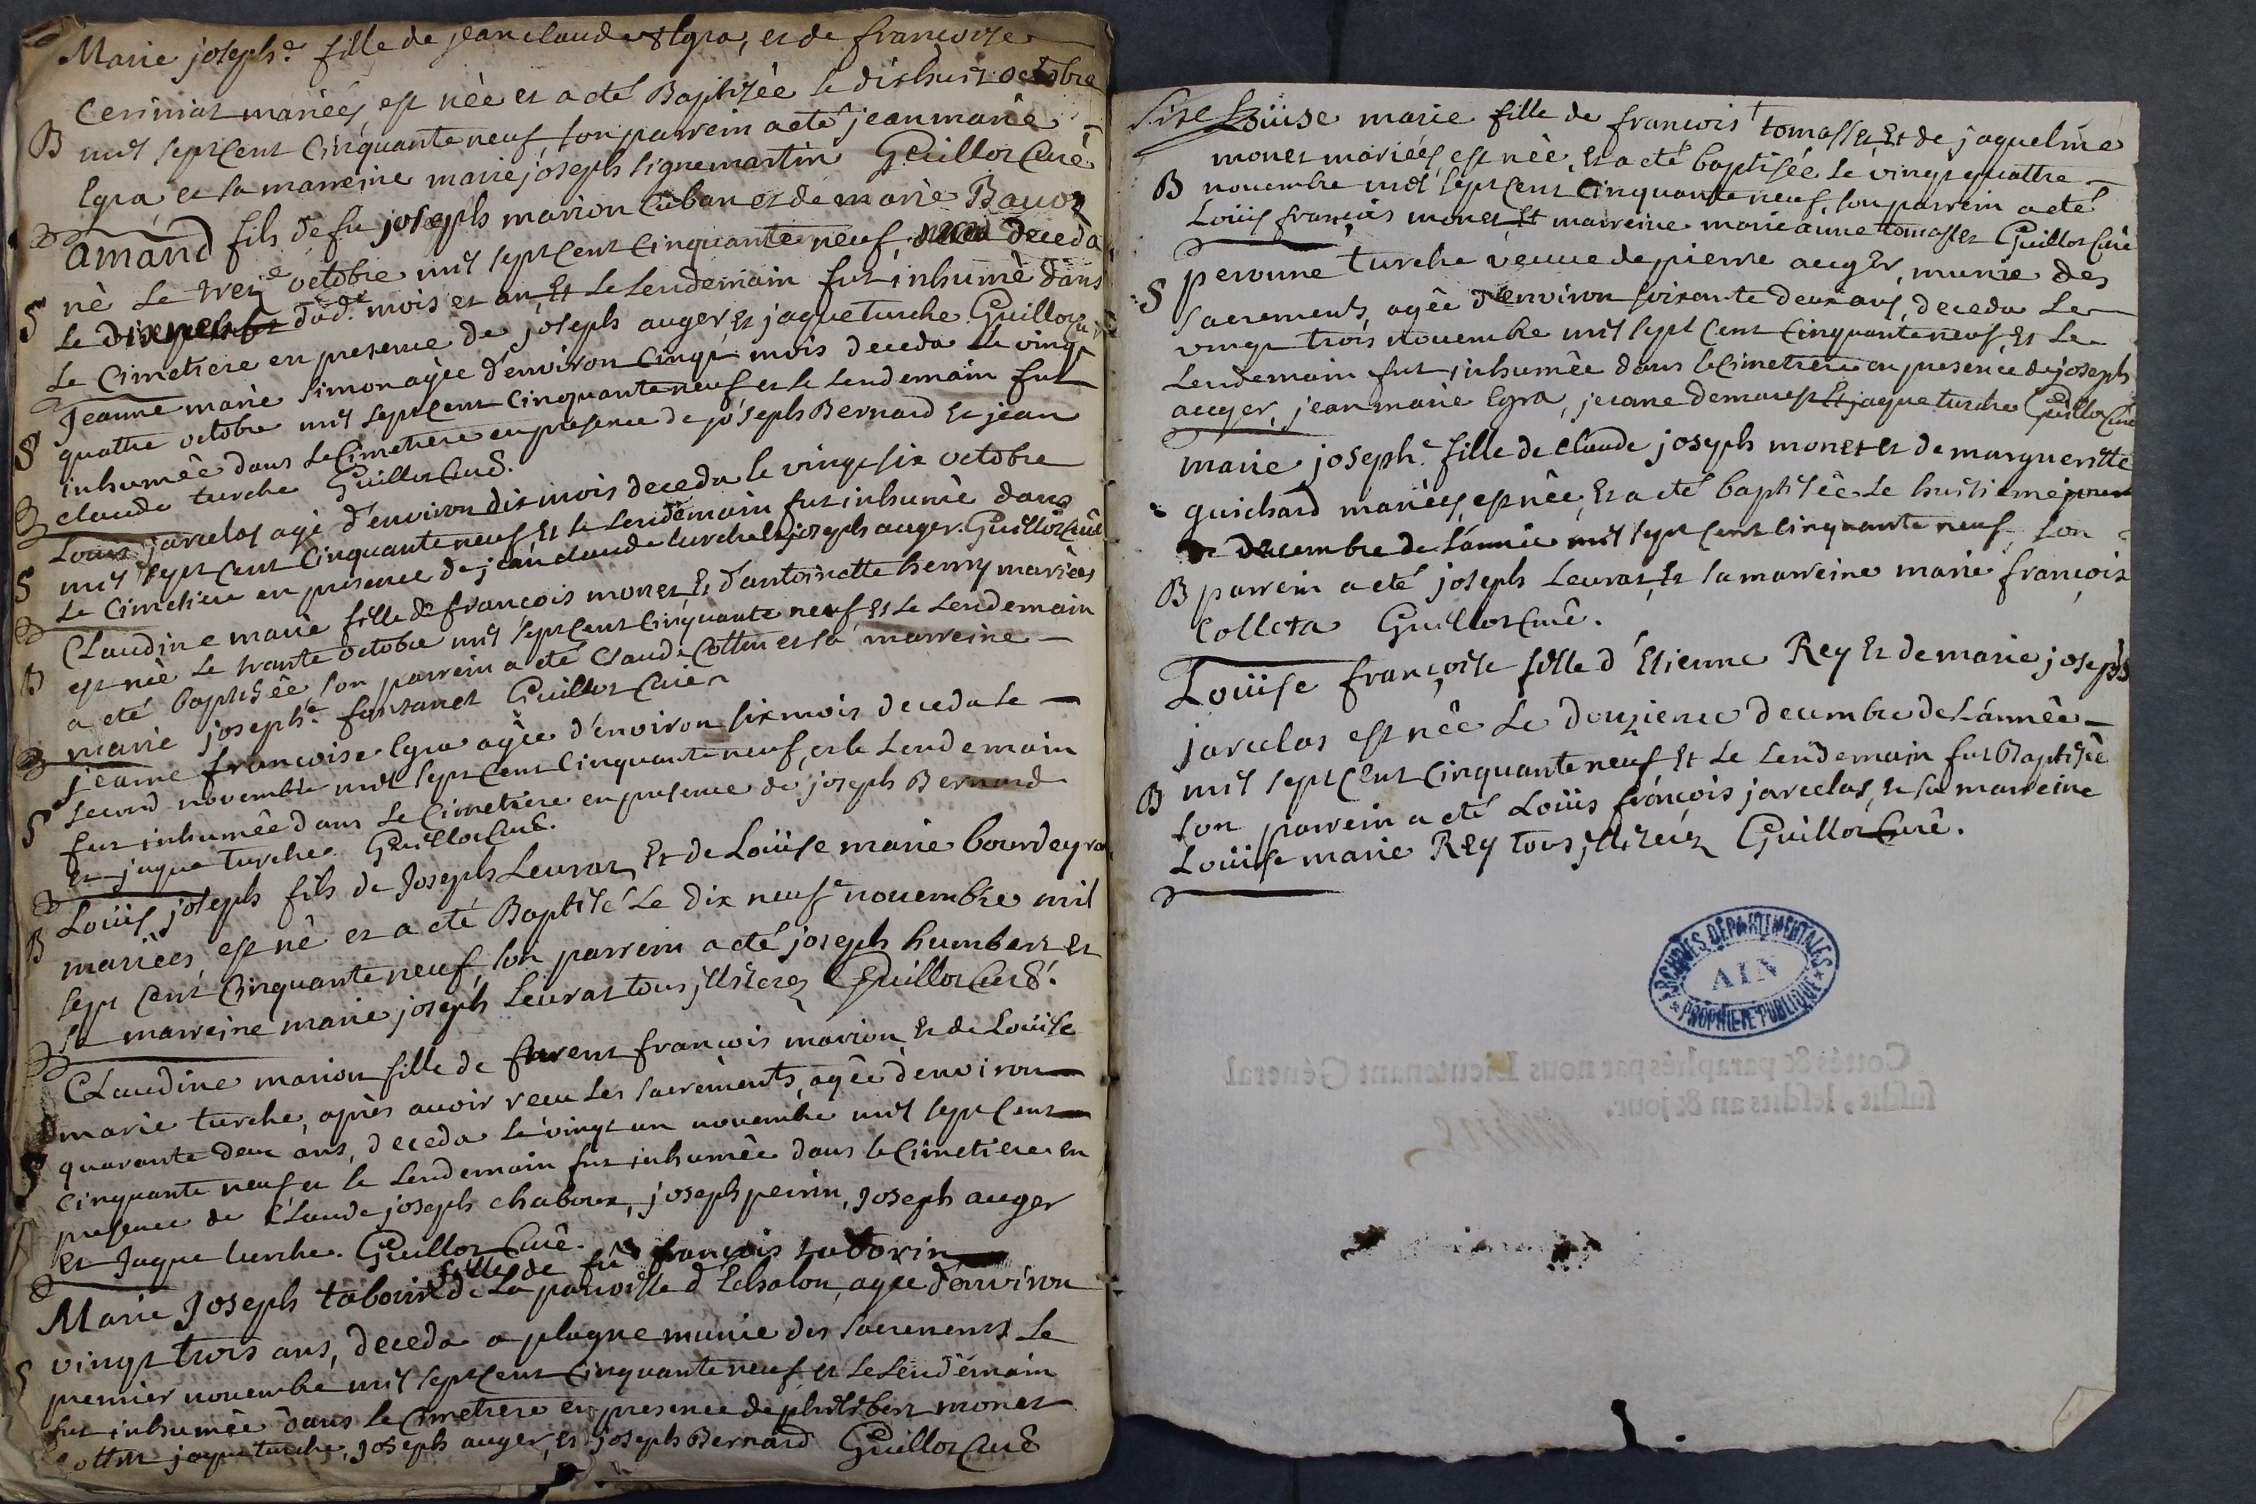 Marie joseph.e fille de jean claude Egra, et de francoise
Cerisiat mariés, est née et a eté Baptizée le dixhuit octobre
B mil sept Cent Cinquante neuf, son parrein a eté jean marie
Egra, et sa marreine marie joseph signemartin Guillot Curé
amand fils de fu joseph marion Cuban et de marie Bauoz
né Le trez.e octobre mil sept Cent Cinquante neuf, deceda
S Le dixneuf dud.t mois et an Et Le Lendemain fut inhumé dans
Le Cimetiere en presence de joseph auger Et jaque turche Guillot Cu
Jeanne marie Simon agée d'environ Cinq mois deceda Le vingt
S quattre octobre mil sept Cent Cinquante neuf et le Lendemain fut
inhumée dans Le Cimetiere en presence de joseph Bernard Et jean
claude turche Guillot Curé.
Louis jarcelat agé d'environ dix mois deceda le vingt six octobre
S mil sept Cent Cinquante neuf Et le Lendemain fut inhumé dans
Le Cimetiere en presence de jean claude turche Et joseph auger. Guillot Curé
CLaudine marie fille de francois monet, Et d'antoinette henry mariés
B est née Le trante octobre mil sept Cent Cinquante neuf et Le Lendemain
a eté baptisée son parrein a eté Claude Cottin et sa marreine
marie joseph.e Guillot Curé
jeanne francoise Egra agée d'environ six mois deceda Le
second novembre mil sept Cent Cinquante neuf, et le Lendemain
S fut inhumée dans Le Cimetiere en presence de joseph Bernard
Et jaque turche. Guillot Curé.
Loüis joseph fils de Joseph Leurat, Et de Loüise marie bourdeyra
B mariés, est né et a eté Baptisé Le dix neuf.e nouembre mil
sept Cent Cinquante neuf, son parrein a eté joseph humbert Et
sa marreine marie joseph Leurat tous jlliterez Guillot Curé.
CLaudine marion fille de francois marion Et de Loüise
marie turche, après auoir reçu Les sacrements, agée d'environ
quarante deux ans, deceda Le vingt un nouembre mil sept Cent
S Cinquante neuf et le Lendemain fut inhumée dans le Cimetiere en
presence de Claude joseph chaboux, joseph perrin, Joseph auger
Et Jaque turche. Guillot Curé.
fille de fû françois taborin
Marie Joseph taborin de La paroisse d'Echalon, agée d'environ
vingt trois ans, deceda a plagne munie des sacrements Le
S premier nouembre mil sept Cent Cinquante neuf et Le Lendemain
fut inhumée dans le Cimetiere en presence de philibert monet
Cottin jaque turche, Joseph auger, Et joseph Bernard Guillot Curé
Loüise marie fille de francois tomasset Et de jaqueline
monet mariés, est née, Et a eté baptisée Le vingt quattre
B novembre mil sept Cent Cinquante neuf, son parrein a eté
Loüis françois monet, Et marreine marie anne tomasset Guillot Curé
peronne turche veuue de pierre auger, munie des
S sacrements, agée d'environ soixante deux ans, deceda Le
vingt trois nouembre mil sept Cent Cinquante neuf, Et Le
Lendemain fut inhumée dans le Cimetiere en presence de joseph
auger, jean marie Egra, jerome demarest Et jaque turche Guillot Curé
Marie joseph.e fille de claude joseph monet et de margueritte
guichard mariés, est née, Et a eté baptisée Le huitieme jour
decembre de L'année mil sept Cent Cinquante neuf, son
B parrein a eté joseph Leurat, Et sa marreine marie françoise
Colleta Guillot Curé.
Loüise françoise fille d'Etienne Rey Et de marie joseph
jarcelat est née Le douzieme decembre de L'année
B mil sept Cent Cinquante neuf Et Le Lendemain fut Baptisée
son parrein a eté Loüis françois jarcelat, Et sa marreine
Loüise marie Rey tous jlliterez Guillot Curé.
ARCHIVES DEPARTEMENTALES
AIN
PROPRIETE PUBLIQUE
Cottés & paraphés par nous Lieutenant Général
susdit, lesdits an & jour.